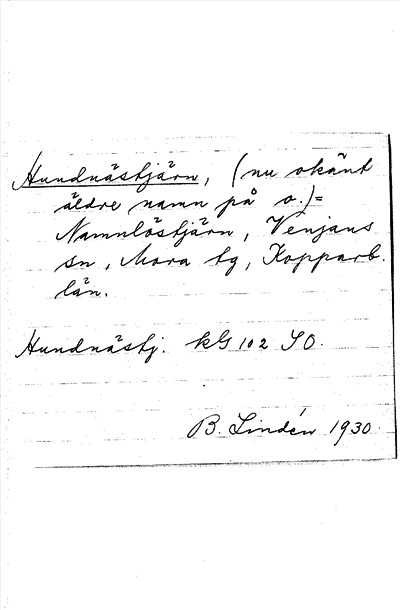 Hundnästjärn, (nu okänt
äldre namn på o.)=
Namnlöstjärn, Venjans
sn, Mora tg, Kopparb.
län.
Hundnästj. kG 102 SO.
B. Lindén 1930